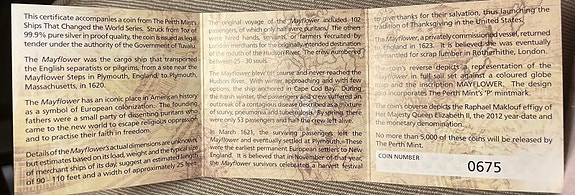 This certificate accompanies a coin from The Perth Mint's
Ships That Changed the World Series. Struck from 1oz of
99.9% pure silver in proof quality, the coin is issued as legal
tender under the authority of the Government of Tuvalu.
The Mayflower was the cargo ship that transported
the English separatists or pilgrims, from a site near the
Mayflower Steps in Plymouth, England, to Plymouth,
Massachusetts, in 1620.
The Mayflower has an iconic place in American history
as a symbol of European colonization. The founding
fathers were a small party of dissenting puritans who
came to the new world to escape religious oppression
and to practise their faith in freedom.
Details of the Mayflower's actual dimensions are unknown
but estimates based on its load, weight and the typical size
of merchant ships of its day, suggest an estimated length
of 90 - 110 feet and a width of approximately 25 feet.
The original voyage of the Mayflower included 102
passengers, of which only half were puritans. The others
were hired hands, servants, or farmers recruited by
London merchants for the originally-intended destination
of the mouth of the Hudson River. The crew numbered
between 25 - 30 souls.
The Mayflower blew off course and never reached the
Hudson River. With winter approaching and with few
options, the ship anchored in Cape Cod Bay. During
the harsh winter, the passengers and crew suffered an
outbreak of a contagious disease described as a mixture
of scurvy, pneumonia and tuberculosis. By spring, there
were only 53 passengers and half the crew left alive.
In March 1621, the surviving passengers left the
Mayflower and eventually settled at Plymouth. These
were the earliest permanent European settlers to New
England. It is believed that in November of that year,
the Mayflower survivors celebrated a harvest festival
to give thanks for their salvation, thus launching the
tradition of Thanksgiving in the United States.
The Mayflower, a privately commissioned vessel, returned
to England in 1623. It is believed she was eventually
dismantled for scrap lumber in Rotherhithe, London.
The coin's reverse depicts a representation of the
Mayflower in full sail set against a coloured globe
map and the inscription MAYFLOWER. The design
incorporates The Perth Mint's 'P' mintmark.
The coin's obverse depicts the Raphael Maklouf effigy of
Her Majesty Queen Elizabeth II, the 2012 year-date and
the monetary denomination.
No more than 5,000 of these coins will be released by
The Perth Mint.
COIN NUMBER
0675